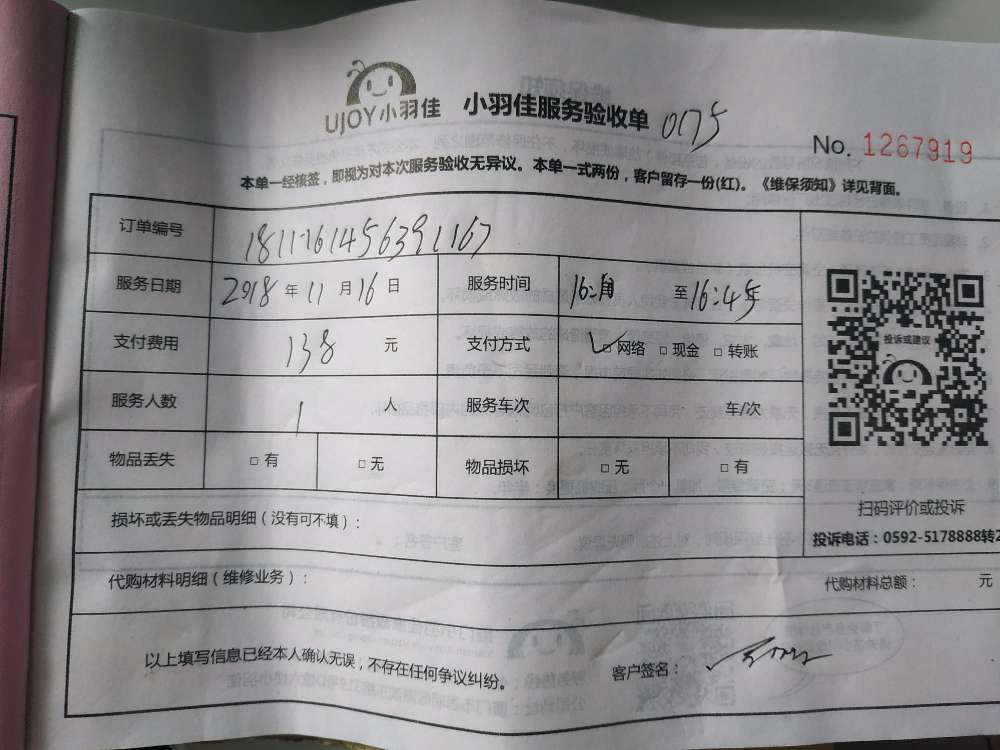 UJOY小羽佳 小羽佳服务验收单 0175
No. 1267919
本单一经核签，即视为对本次服务验收无异议。本单一式两份，客户留存一份(红)。《维保须知》详见背面。
订单编号 1811161456391167
服务日期 2018 年 11 月 16 日 服务时间 至
支付费用 138 元 支付方式 ✓□ 网络 □ 现金 □ 转账
投诉或建议
服务人数 1 人 服务车次 车/次
物品丢失 □ 有 □ 无 物品损坏 □ 无 □ 有
扫码评价或投诉
损坏或丢失物品明细（没有可不填）：
投诉电话：0592-5178888转2
代购材料明细（维修业务）：
代购材料总额： 元
以上填写信息已经本人确认无误，不存在任何争议纠纷。 客户签名：